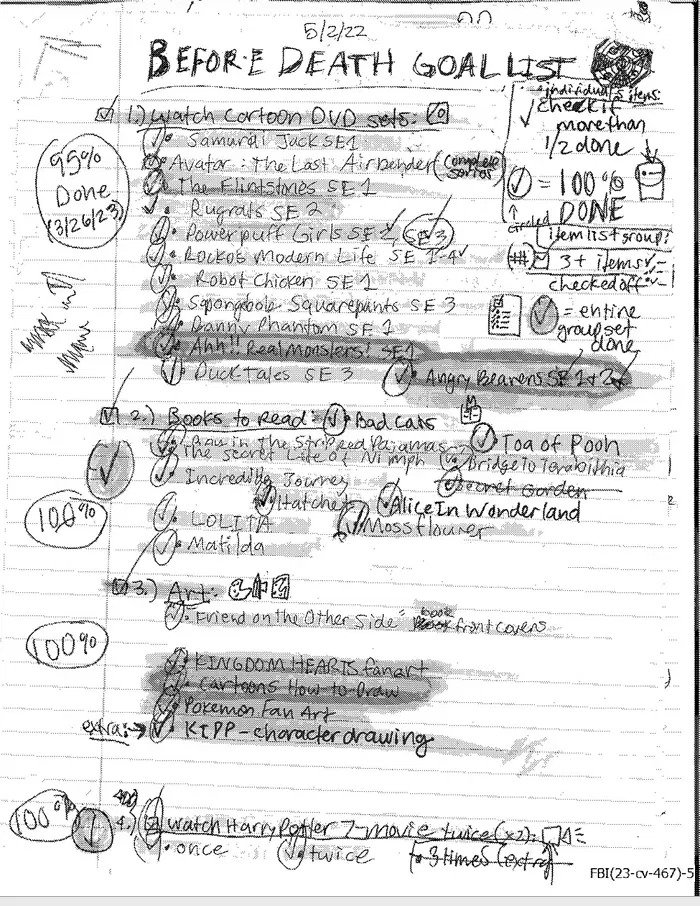 5/2/22
BEFORE DEATH GOAL LIST
individual items:
✓ check if
more than
1/2 done
✓ = 100%
DONE
circled
item list group:
(##) 3+ items ✓
checked off
✓ = entire
group set
done
1.) Watch Cartoon DVD sets:
95%
Done
(3/26/23)
Samurai Jack SE 1
Avatar: The Last Airbender (complete series)
The Flintstones SE 1
Rugrats SE 2
Powerpuff Girls SE 2, SE 3
Rocko's Modern Life SE 1-4
Robot Chicken SE 1
Spongbob Squarepants SE 3
Danny Phantom SE 1
Ahh!! Real Monsters! SE 1
Duck Tales SE 3
Angry Beavers SE 1 + 2
2.) Books to Read:
Bad Cats
in the Stripped Pajamas
Toa of Pooh
The Secret Life of Nimph
Bridge to Terabithia
Incredible Journey
Secret Garden
Hatchet
Alice In Wonderland
100%
LOLITA
Mossflower
Matilda
3.) Art:
Friend on the Other Side" book front covers
100%
KINGDOM HEARTS fanart
Cartoons How to Draw
Pokemon Fan Art
extra:→ KIPP - character drawing
100%
4.) Watch Harry Potter 7-movie twice (x2):
once
twice
3 times (extra)
FBI(23-cv-467)-5